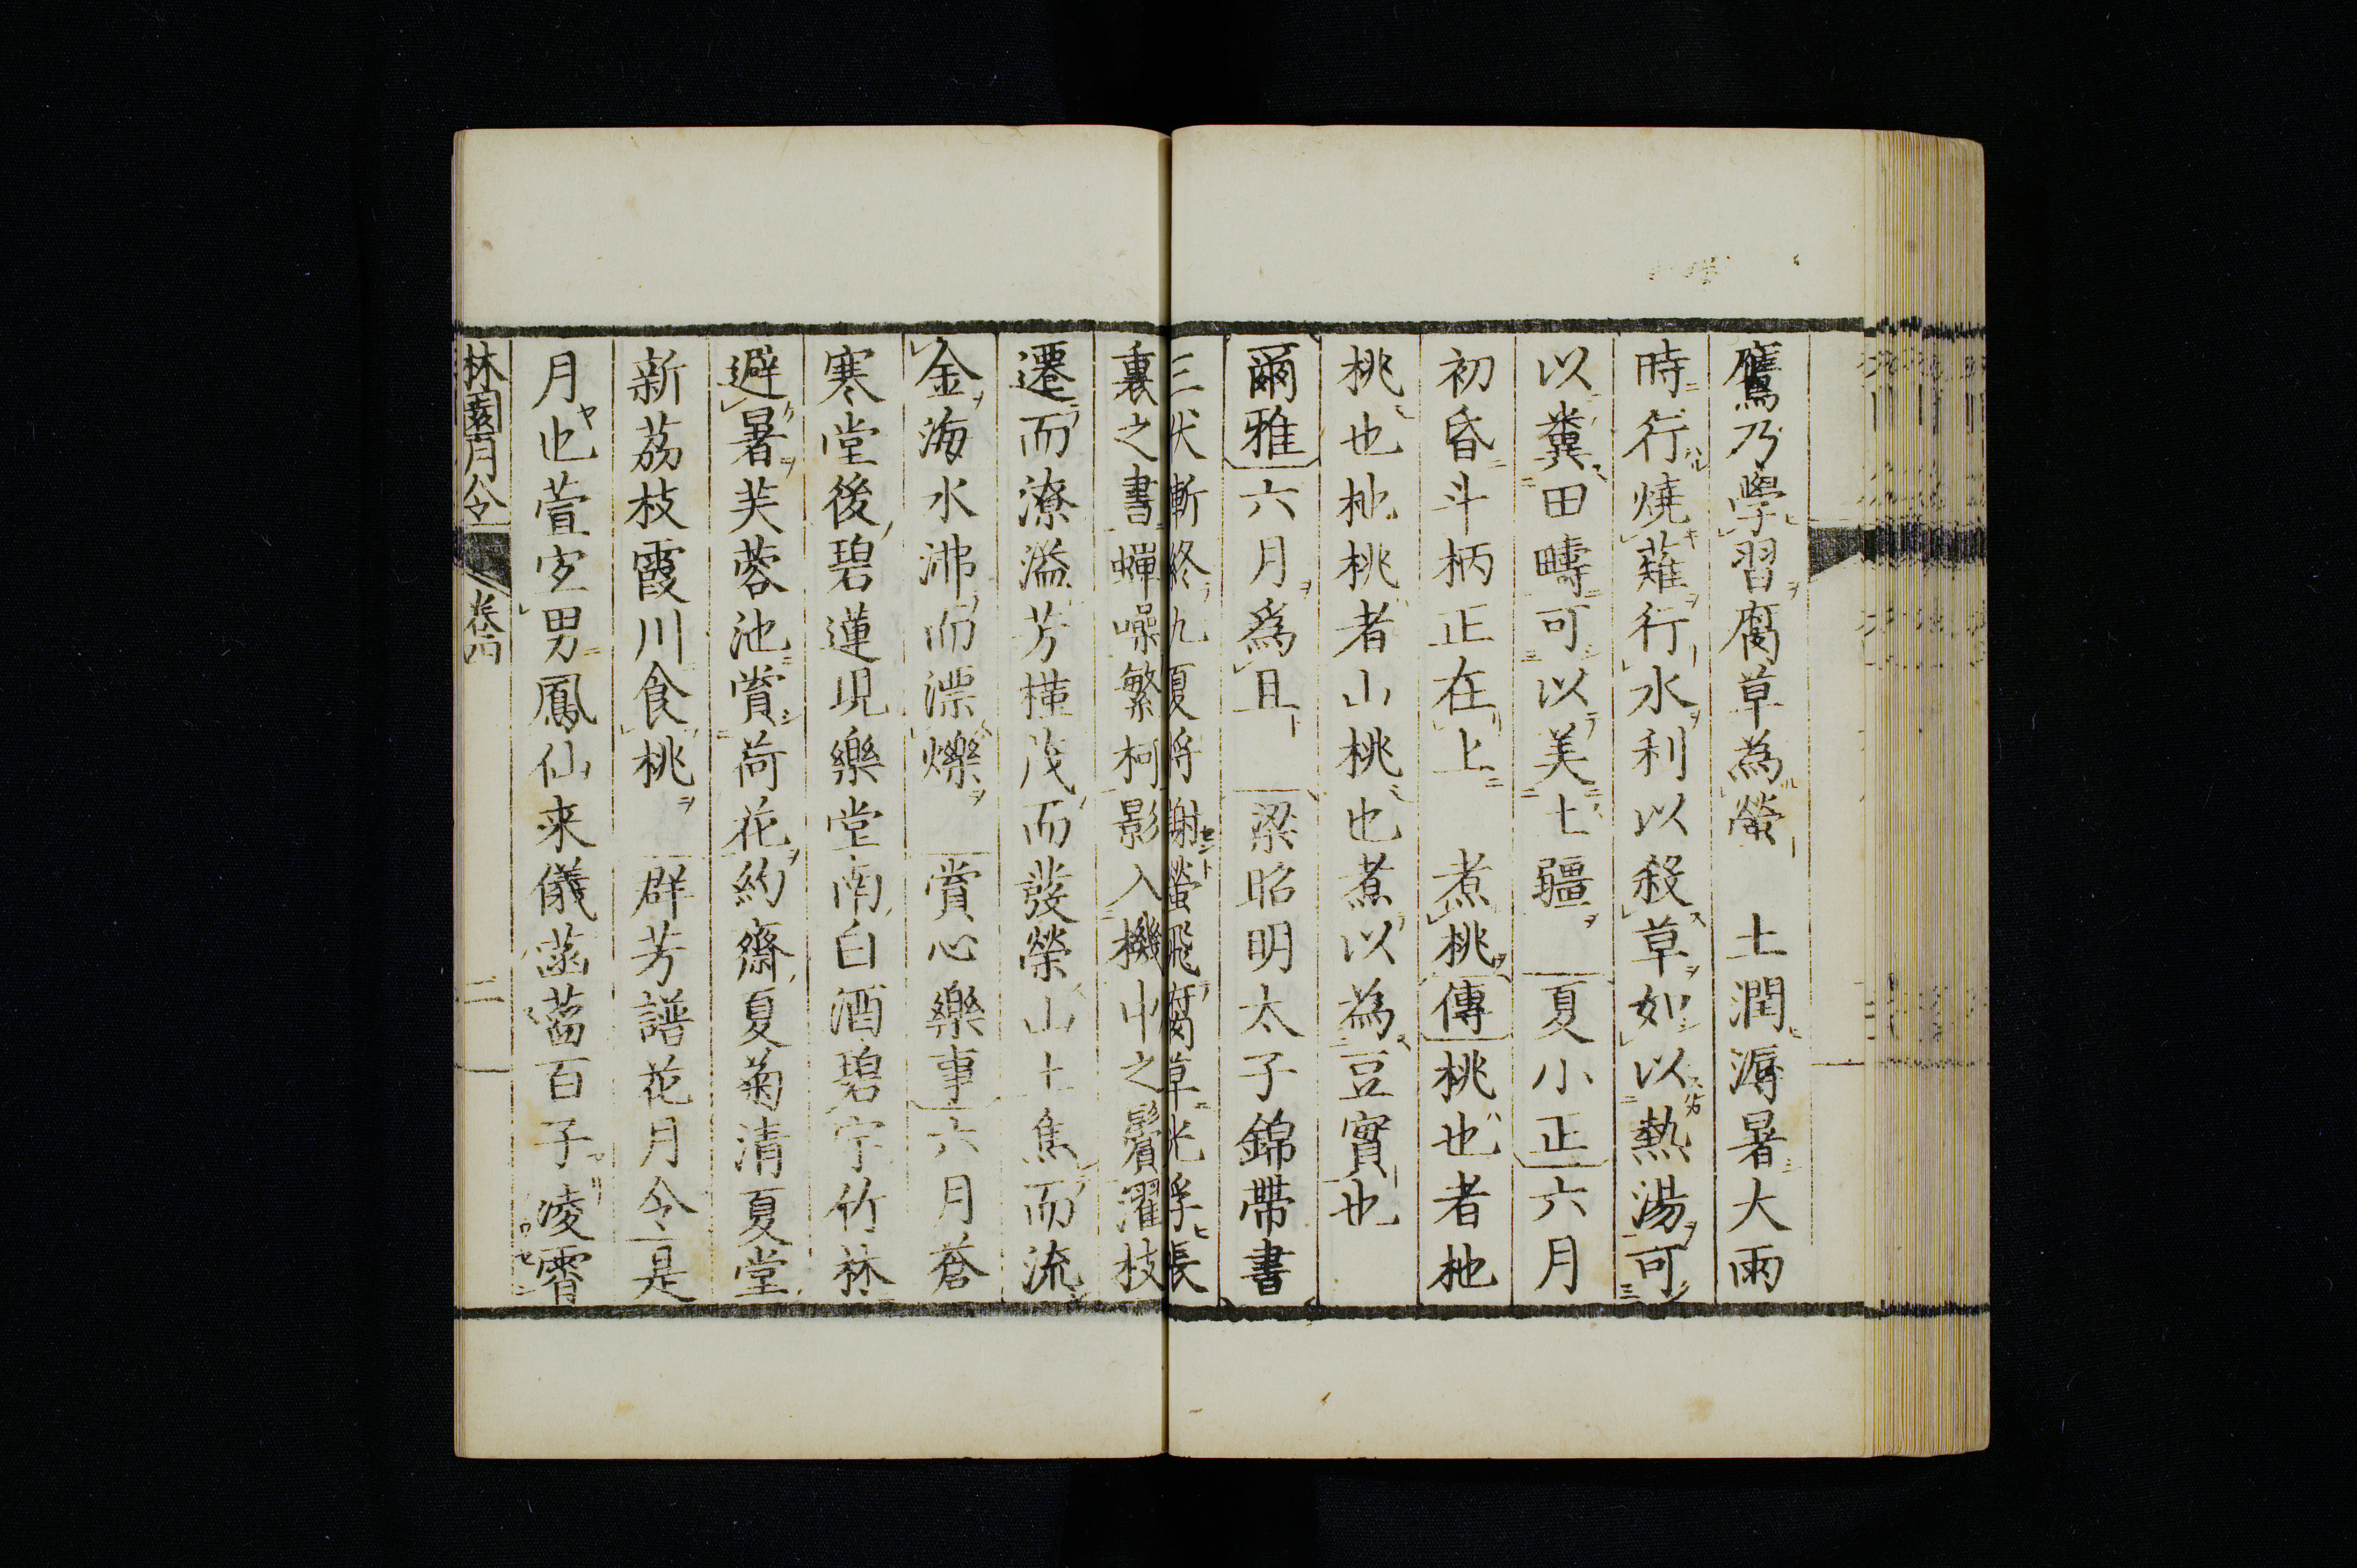 鷹乃學習腐草為螢　土潤溽暑大雨
時行燒薙行水利以殺草如以熱湯可
以糞田疇可以美土疆　夏小正六月
初昏斗柄正在上　煮桃傳桃也者杝
桃也杝桃者山桃也煮以為豆實也
爾雅六月爲且　梁昭明太子錦帶書
三伏漸終九夏將謝螢飛腐草光浮帳
裏之書蟬噪繁柯影入機中之鬢濯枝
遷而潦溢芳槿茂而發榮山土焦而流
金海水沸而漂爍　賞心樂事六月蒼
寒堂後碧蓮現樂堂南白酒碧宇竹林
避暑芙蓉池賞荷花約齋夏菊清夏堂
新荔枝霞川食桃　群芳譜花月令是
月也萱宜男鳳仙来儀菡萏百子凌霄
林園月令　卷四　二